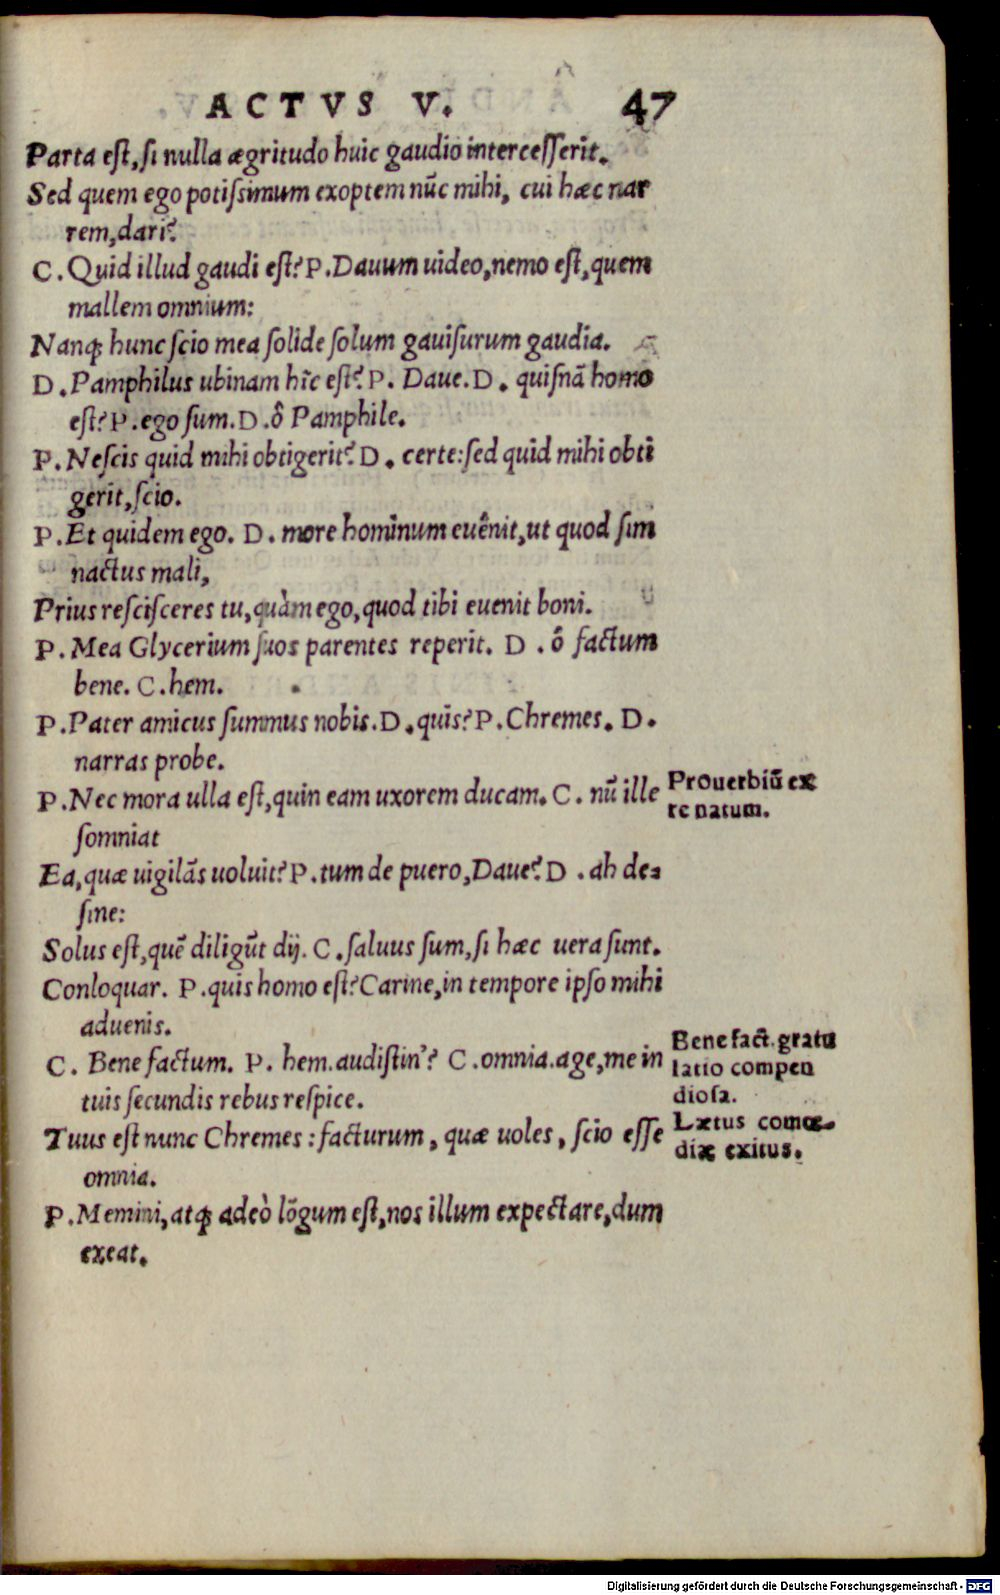 ACTVS V. 47
Parta eſt, ſi nulla ægritudo huic gaudio interceſſerit.
Sed quem ego potiſsimum exoptem nũc mihi, cui hæc nar
rem, dari?
C. Quid illud gaudi eſt? P. Dauum uideo, nemo eſt, quem
mallem omnium:
Nanq; hunc ſcio mea ſolide ſolum gauiſurum gaudia.
D. Pamphilus ubinam hîc eſt? P. Daue. D. quiſnã homo
eſt? P. ego ſum. D. ô Pamphile.
P. Neſcis quid mihi obtigerit? D. certe: ſed quid mihi obti
gerit, ſcio.
P. Et quidem ego. D. more hominum euênit, ut quod ſim
nactus mali,
Prius reſciſceres tu, quàm ego, quod tibi euenit boni.
P. Mea Glycerium ſuos parentes reperit. D. ô factum
bene. C. hem.
P. Pater amicus ſummus nobis. D. quis? P. Chremes. D.
narras probe.
P. Nec mora ulla eſt, quin eam uxorem ducam. C. nũ ille
ſomniat
Ea, quæ uigilãs uoluit? P. tum de puero, Daue? D. ah de⸗
ſine:
Solus eſt, quẽ diligũt dij. C. ſaluus ſum, ſi hæc uera ſunt.
Conloquar. P. quis homo eſt? Carine, in tempore ipſo mihi
aduenis.
C. Bene factum. P. hem. audiſtin'? C. omnia. age, me in
tuis ſecundis rebus reſpice.
Tuus eſt nunc Chremes: facturum, quæ uoles, ſcio eſſe
omnia.
P. Memini, atq; adeò lõgum eſt, nos illum expectare, dum
exeat.
Prouerbiũ ex
re natum.
Bene fact. gratu
latio compen
dioſa.
Lætus comœ⸗
diæ exitus.
Digitalisierung gefördert durch die Deutsche Forschungsgemeinschaft - DFG